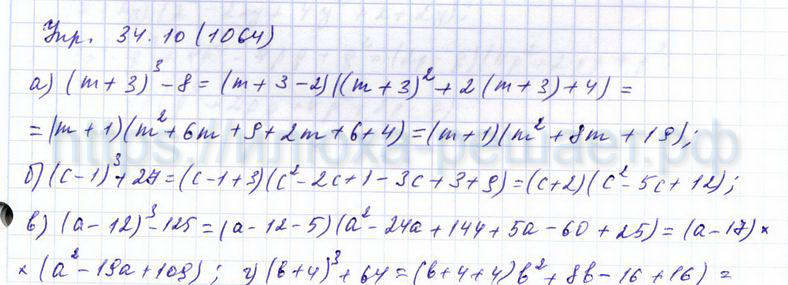 Упр. 34.10 (1064)
а) (m+3)³-8 = (m+3-2)((m+3)²+2(m+3)+4) =
= (m+1)(m²+6m+9+2m+6+4) = (m+1)(m²+8m+19);
б) (c-1)³+27 = (c-1+3)(c²-2c+1-3c+3+9) = (c+2)(c²-5c+12);
в) (a-12)³-125 = (a-12-5)(a²-24a+144+5a-60+25) = (a-17)×
× (a²-19a+109); г) (b+4)³+64 = (b+4+4)b²+8b-16+16) =